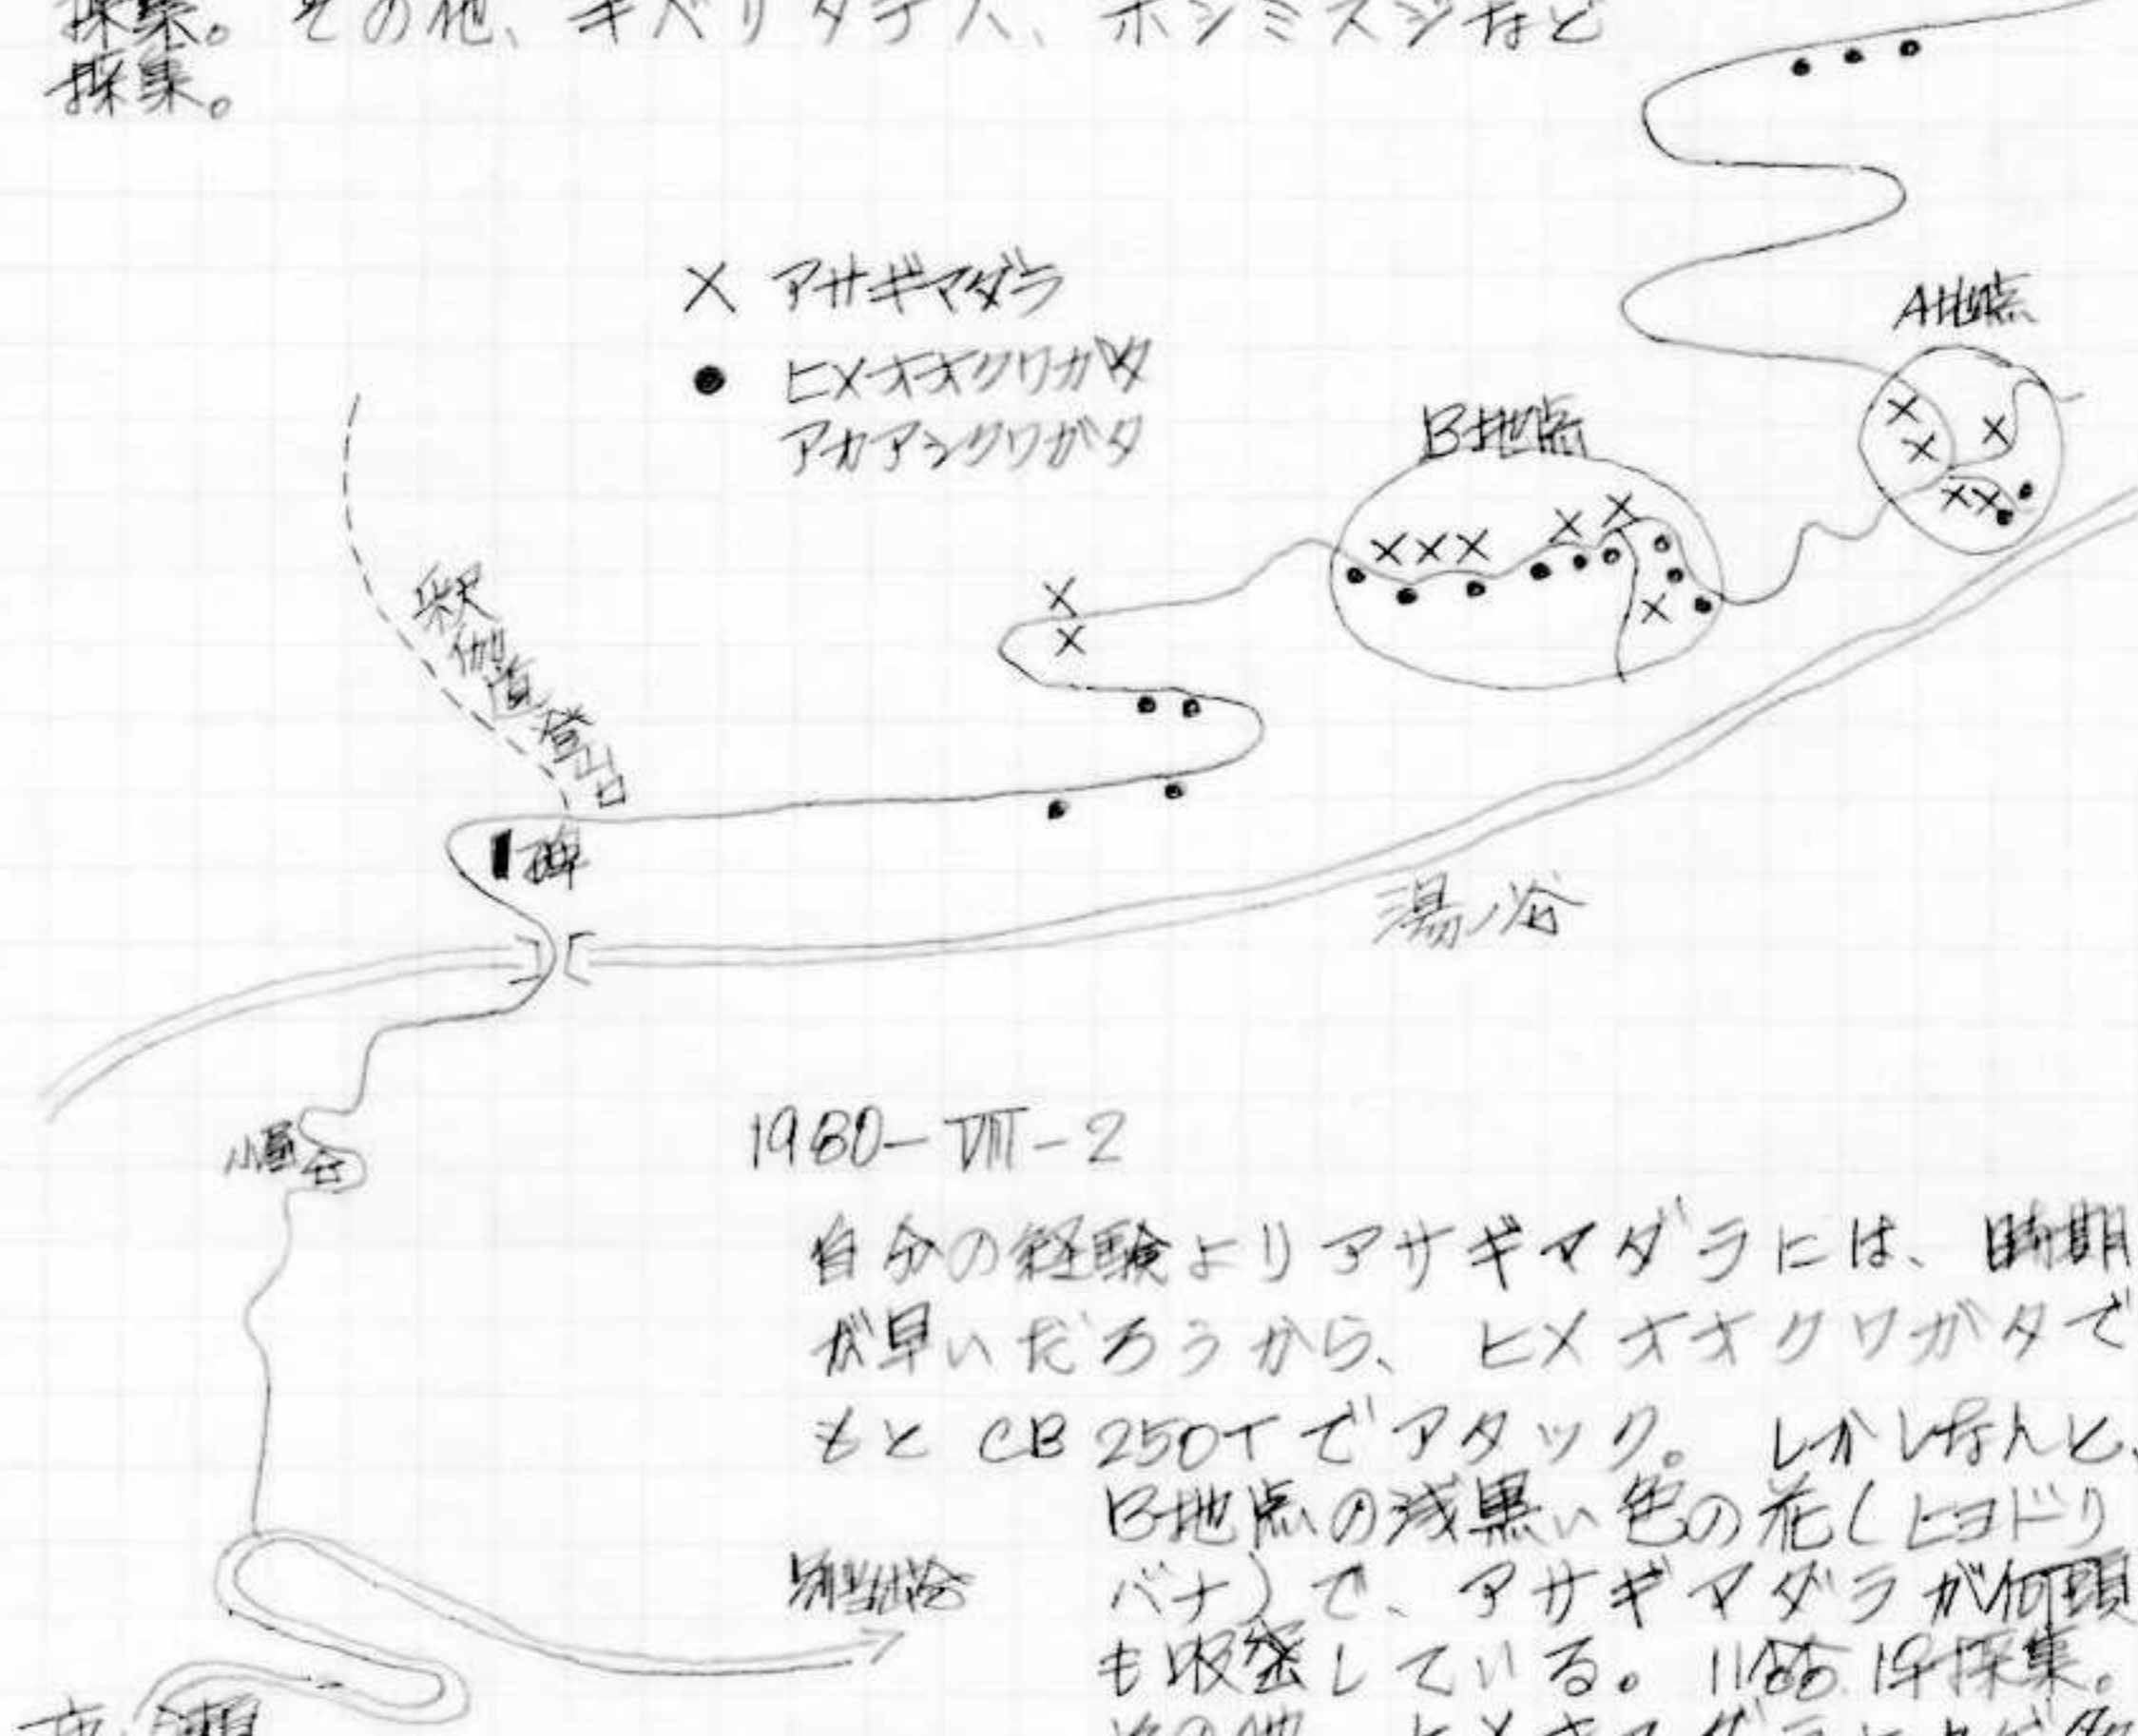 採集。その他、キベリタテハ、ホシミスジなど
採集。
× アサギマダラ
● ヒメオオクワガタ
アカアシクワガタ
A地点
B地点
釈迦道登山口
碑
湯ノ谷
小屋
1980-VIII-2
自分の経験よりアサギマダラには、時期
が早いだろうから、ヒメオオクワガタで
もと CB250TでアタックB。しかしなんと、
B地点の浅黒い色の花(ヒヨドリ
別当出合
バナ)で、アサギマダラが何頭
も吸蜜している。11♂♂ 1♀採集。